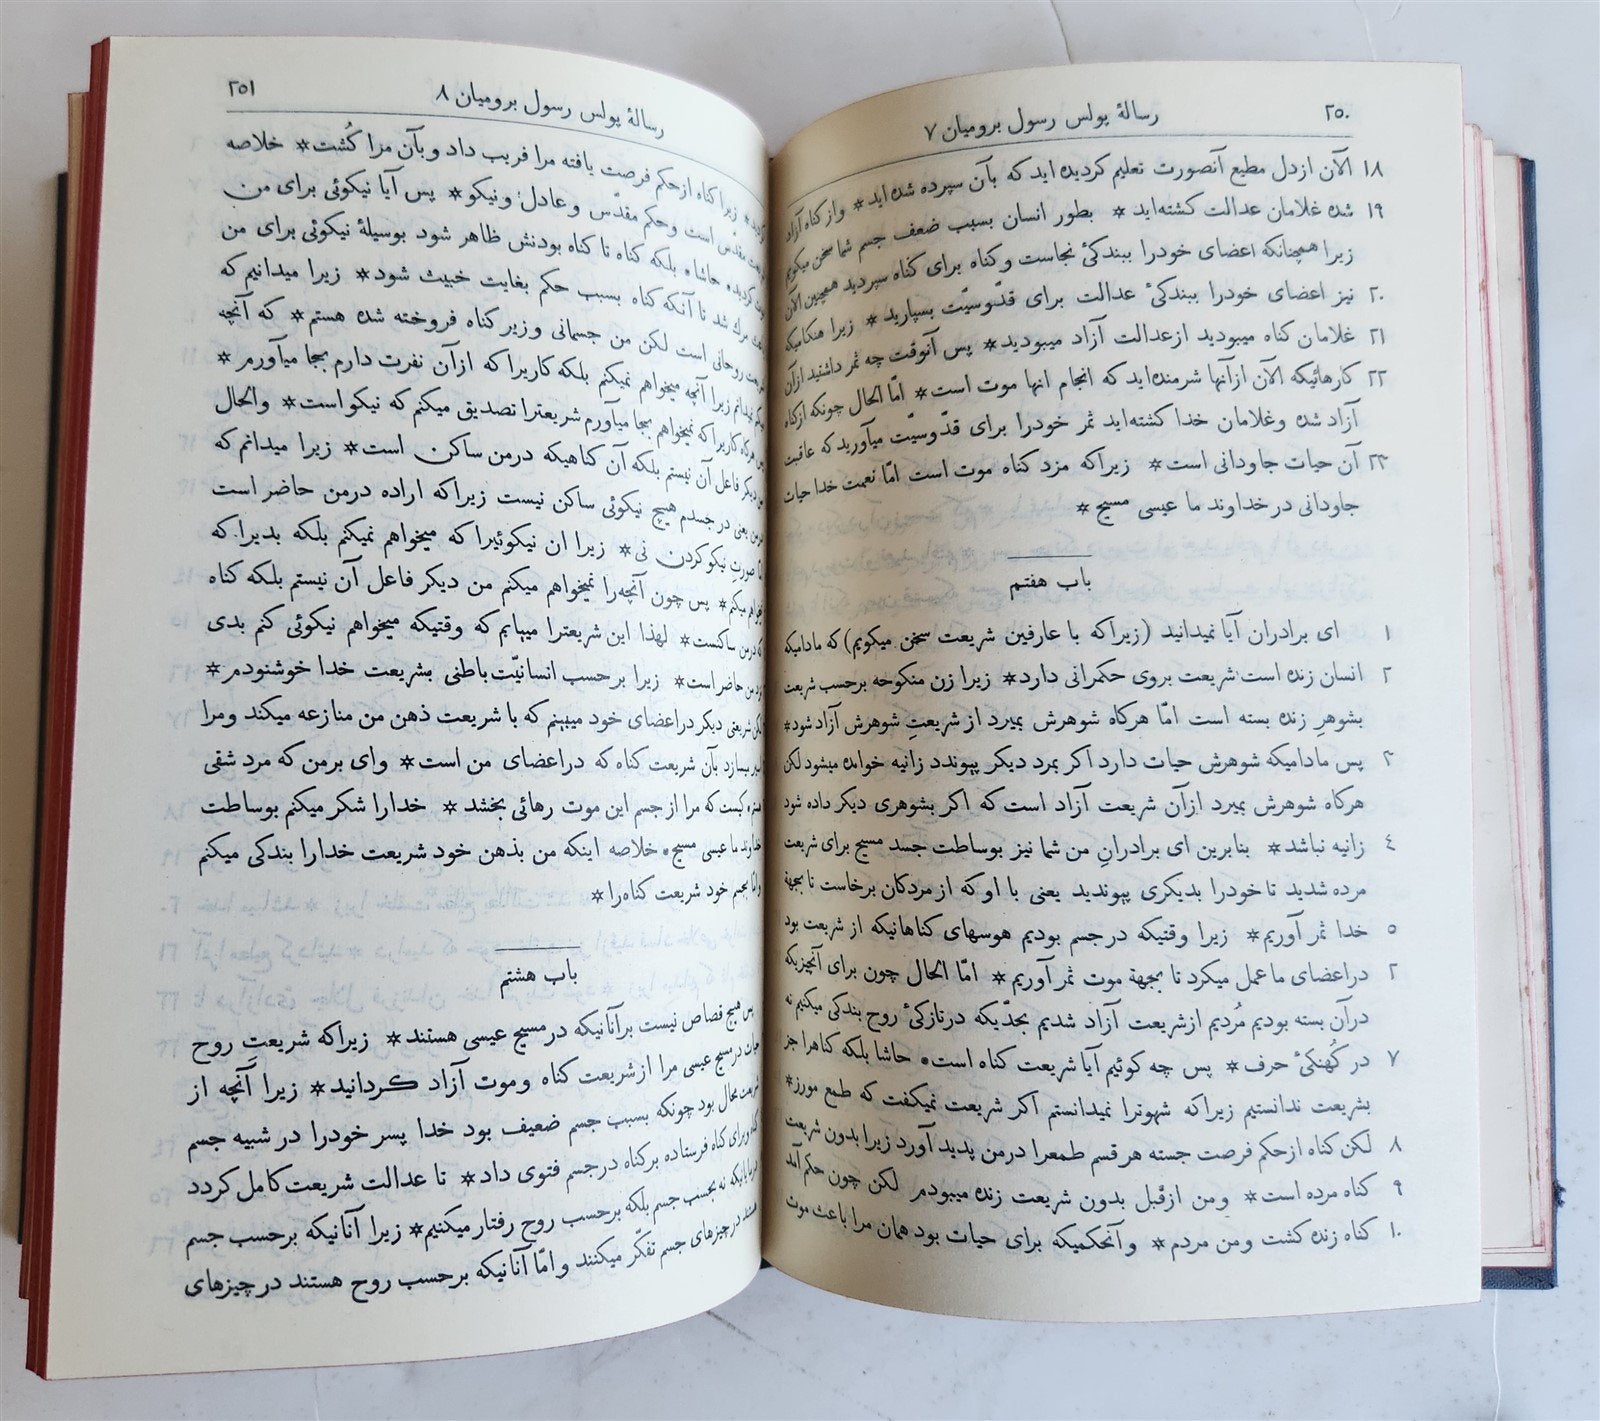 ٢٥٠
رسالهٔ پولس رسول برومیان ٧
١٨ الآن ازدل مطیع آنصورت تعلیم کردیده‌اید که بآن سپرده شده‌اید✶ وازکناه آزاد
١٩ شده غلامان عدالت کشته‌اید✶ بطور انسان بسبب ضعف جسم شما سخن میکویم
زیرا همچنانکه اعضای خودرا ببندکیٔ نجاست وکناه برای کناه سپردید همچنین الآن
٢٠ نیز اعضای خودرا ببندکیٔ عدالت برای قدّوسیّت بسپارید✶ زیرا هنکامیکه
٢١ غلامان کناه میبودید ازعدالت آزاد میبودید✶ پس آنوقت چه ثمر داشتید ازآن
٢٢ کارهائیکه الآن ازآنها شرمنده‌اید که انجام انها موت است✶ امّا الحال چونکه ازکناه
آزاد شده وغلامان خدا کشته‌اید ثمر خودرا برای قدّوسیّت میآورید که عاقبت
٢٣ آن حیات جاودانی است✶ زیراکه مزد کناه موت است امّا نعمت خدا حیات
جاودانی درخداوند ما عیسی مسیح✶
باب هفتم
١ ای برادران آیا نمیدانید (زیراکه با عارفین شریعت سخن میکویم) که مادامیکه
٢ انسان زنده است شریعت بروی حکمرانی دارد✶ زیرا زن منکوحه برحسب شریعت
بشوهرِ زنده بسته است امّا هرکاه شوهرش بمیرد از شریعتِ شوهرش آزاد شود✶
٣ پس مادامیکه شوهرش حیات دارد اکر بمرد دیکر پیوندد زانیه خوانده میشود لکن
هرکاه شوهرش بمیرد ازآن شریعت آزاد است که اکر بشوهری دیکر داده شود
٤ زانیه نباشد✶ بنابرین ای برادرانِ من شما نیز بوساطت جسد مسیح برای شریعت
مرده شدید تا خودرا بدیکری پیوندید یعنی با او که از مردکان برخاست تا بجهة
٥ خدا ثمر آوریم✶ زیرا وقتیکه درجسم بودیم هوسهای کناهانیکه از شریعت بود
٦ دراعضای ما عمل میکرد تا بجهة موت ثمر آوریم✶ امّا الحال چون برای آنچیزیکه
درآن بسته بودیم مُردیم ازشریعت آزاد شدیم بحدّیکه درتازکیٔ روح بندکی میکنیم نه
٧ در کُهنکیٔ حرف✶ پس چه کوئیم آیا شریعت کناه است• حاشا بلکه کناهرا جز
بشریعت ندانستیم زیراکه شهوترا نمیدانستم اکر شریعت نمیکفت که طمع مورز✶
٨ لکن کناه ازحکم فرصت جسته هرقسم طمعرا درمن پدید آورد زیرا بدون شریعت
٩ کناه مرده است✶ ومن ازقبل بدون شریعت زنده میبودم لکن چون حکم آمد
١٠ کناه زنده کشت ومن مردم✶ وآنحکمیکه برای حیات بود همان مرا باعث موت
٢٥١
رسالهٔ پولس رسول برومیان ٨
زیرا کناه ازحکم فرصت یافته مرا فریب داد وبآن مرا کُشت✶ خلاصه
مقدّس است وحکم مقدّس وعادل ونیکو✶ پس آیا نیکوئی برای من
حاشا• بلکه کناه تا کناه بودنش ظاهر شود بوسیلهٔ نیکوئی برای من
مرك شد تا آنکه کناه بسبب حکم بغایت خبیث شود✶ زیرا میدانیم که
روحانی است لکن من جسمانی وزیرکناه فروخته شده هستم✶ که آنچه
زیرا آنچه میخواهم نمیکنم بلکه کاریراکه ازآن نفرت دارم بجا میآورم✶
هرکاه کاریراکه نمیخواهم بجا میآورم شریعترا تصدیق میکنم که نیکواست✶ والحال
دیکر فاعل آن نیستم بلکه آن کناهیکه درمن ساکن است✶ زیرا میدانم که
یعنی درجسدم هیچ نیکوئی ساکن نیست زیراکه اراده درمن حاضر است
امّا صورتِ نیکو کردن نی✶ زیرا ان نیکوئیرا که میخواهم نمیکنم بلکه بدیرا که
میکنم✶ پس چون آنچه‌را نمیخواهم میکنم من دیکر فاعل آن نیستم بلکه کناه
که درمن ساکنست✶ لهذا این شریعترا مییابم که وقتیکه میخواهم نیکوئی کنم بدی
نزد من حاضر است✶ زیرا برحسب انسانیّت باطنی بشریعت خدا خوشنودم✶
لکن شریعتی دیکر دراعضای خود میبینم که با شریعت ذهن من منازعه میکند ومرا
میسازد بآن شریعت کناه که دراعضای من است✶ وای برمن که مرد شقی
کیست که مرا از جسم این موت رهائی بخشد✶ خدارا شکر میکنم بوساطت
خداوند ما عیسی مسیح• خلاصه اینکه من بذهن خود شریعت خدارا بندکی میکنم
وامّا بجسم خود شریعت کناه‌را✶
باب هشتم
پس هیچ قصاص نیست برآنانیکه درمسیح عیسی هستند✶ زیراکه شریعتِ روح
حیات درمسیح عیسی مرا ازشریعت کناه وموت آزاد کردانید✶ زیرا آنچه از
شریعت محال بود چونکه بسبب جسم ضعیف بود خدا پسر خودرا در شبیه جسم
وبرای کناه فرستاده برکناه درجسم فتوی داد✶ تا عدالت شریعت کامل کردد
نه بحسب جسم بلکه برحسب روح رفتار میکنیم✶ زیرا آنانیکه برحسب جسم
درچیزهای جسم تفکّر میکنند وامّا آنانیکه برحسب روح هستند درچیزهای